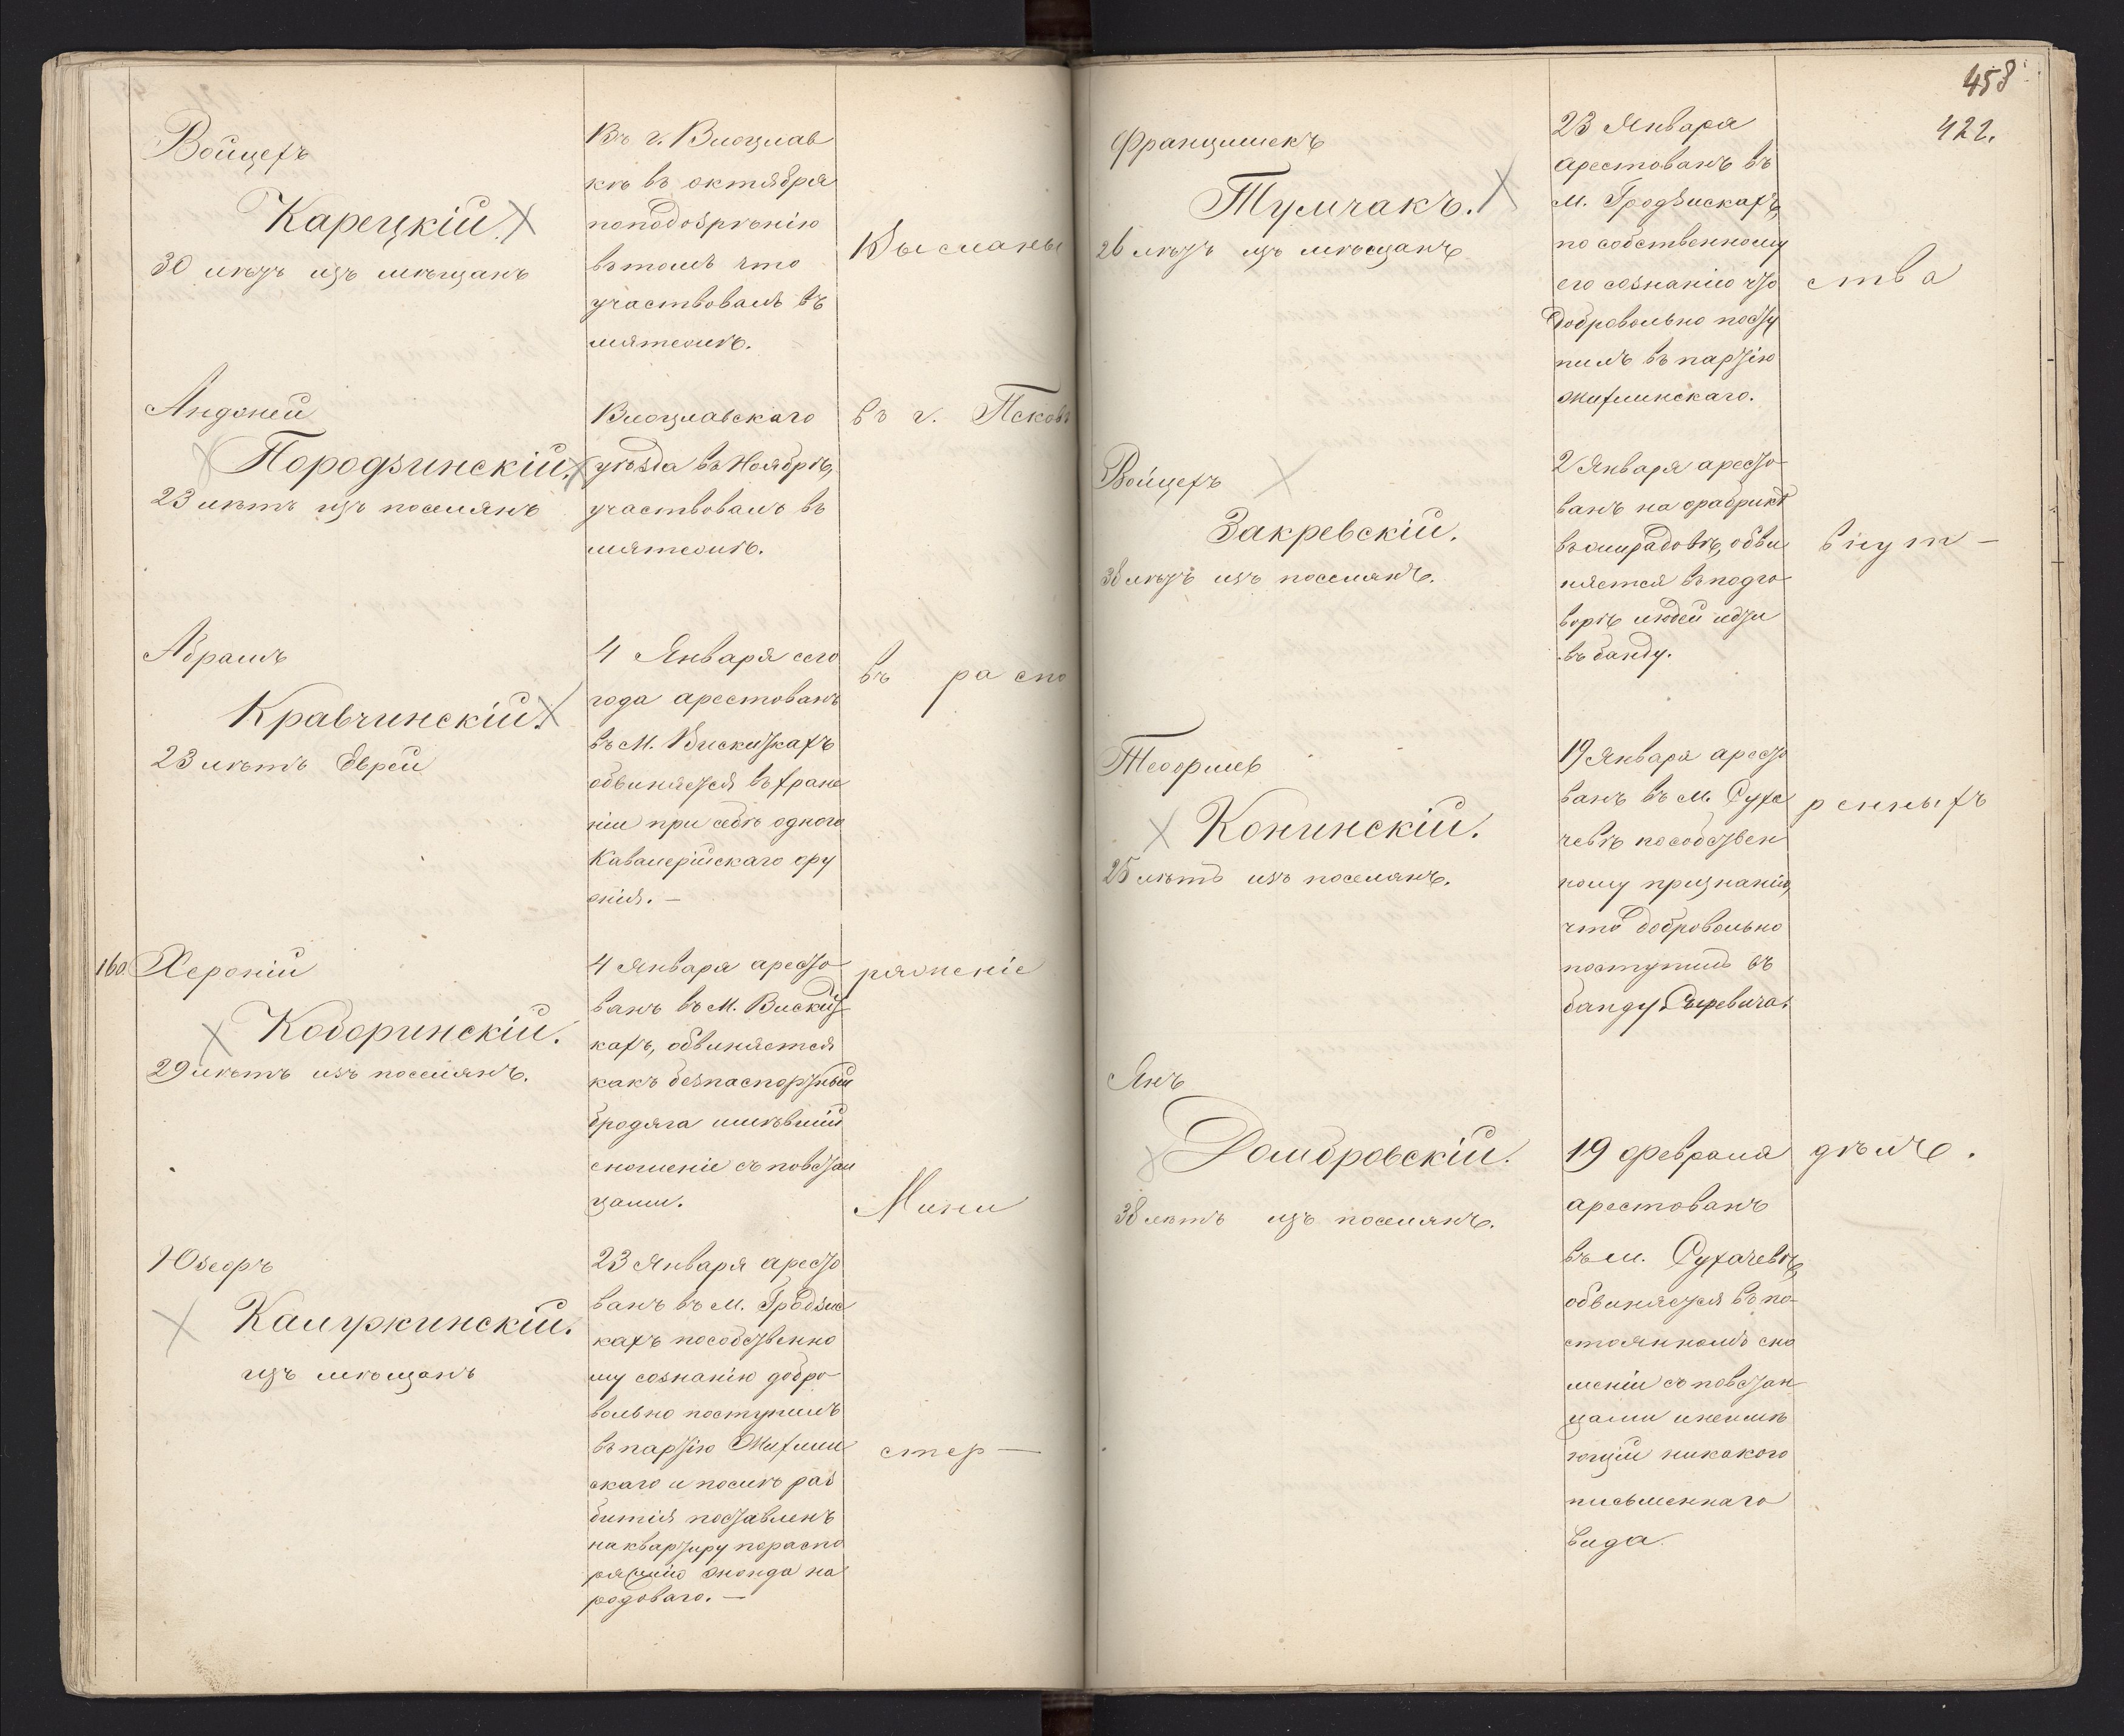 Войцехъ
Карецкій.
30 лѣтъ изъ мѣщанъ
Въ г. Влоцлав
кѣ въ октября
поподозрѣнію
въ томъ что
участвовалъ въ
мятежѣ.
Высланы
Андржей
Породзинскій.
23 лѣтъ изъ поселянъ
Влоцлавскаго
уѣзда въ Ноябрѣ,
участвовалъ въ
мятежѣ.
въ г. Псковъ
Абрамъ
Кравчинскій.
23 лѣтъ Еврей
4 Января сего
года арестованъ
въ М. Вискиткахъ
обвиняется въ хране
ніи при себѣ одного
Кавалерійскаго ору
жія. —
въ распо
160. Хероній
Коборинскій.
29 лѣтъ изъ поселянъ.
4 Января аресто
ванъ въ М. Вискит
кахъ, обвиняется
какъ безпаспортный
бродяга имѣвшій
сношеніе съ повстан
цами.
ряженіе
Мини
Юзефъ
Калужинскій.
изъ мѣщанъ
23 Января аресто
ванъ въ М. Гродзис
кахъ по собственно
му сознанію добро
вольно поступилъ
въ партію Жихлин
скаго и послѣ раз
битія поставленъ
на квартиру по распо
ряженію жонда на
родоваго. —
стер —
458
422.
Францишекъ
Тулчакъ.
26 лѣтъ изъ мѣщанъ
23 Января
арестованъ въ
М. Гродзискахъ,
по собственному
его сознанію что
добровольно посту
пилъ въ партію
Жихлинскаго.
ства
Войцехъ
Закревскій.
38 лѣтъ изъ поселянъ.
2 Января аресто
ванъ на фабрикѣ
въ обви
няется въ подго
ворѣ людей идти
въ банду.
внут —
Теофилъ
Конинскій.
25 лѣтъ изъ поселянъ.
19 Января аресто
ванъ въ М. Суха
чевѣ по собствен
ному признанію,
что добровольно
поступилъ въ
банду
ренныхъ
Янъ
Домбровскій.
38 лѣтъ изъ поселянъ.
19 февраля
арестованъ
въ м. Сухачевѣ,
обвиняется въ по-
стоянномъ сно
шеніи съ повстан
цами и неимѣ
ющій никакого
письменнаго
вида.
дѣлъ.